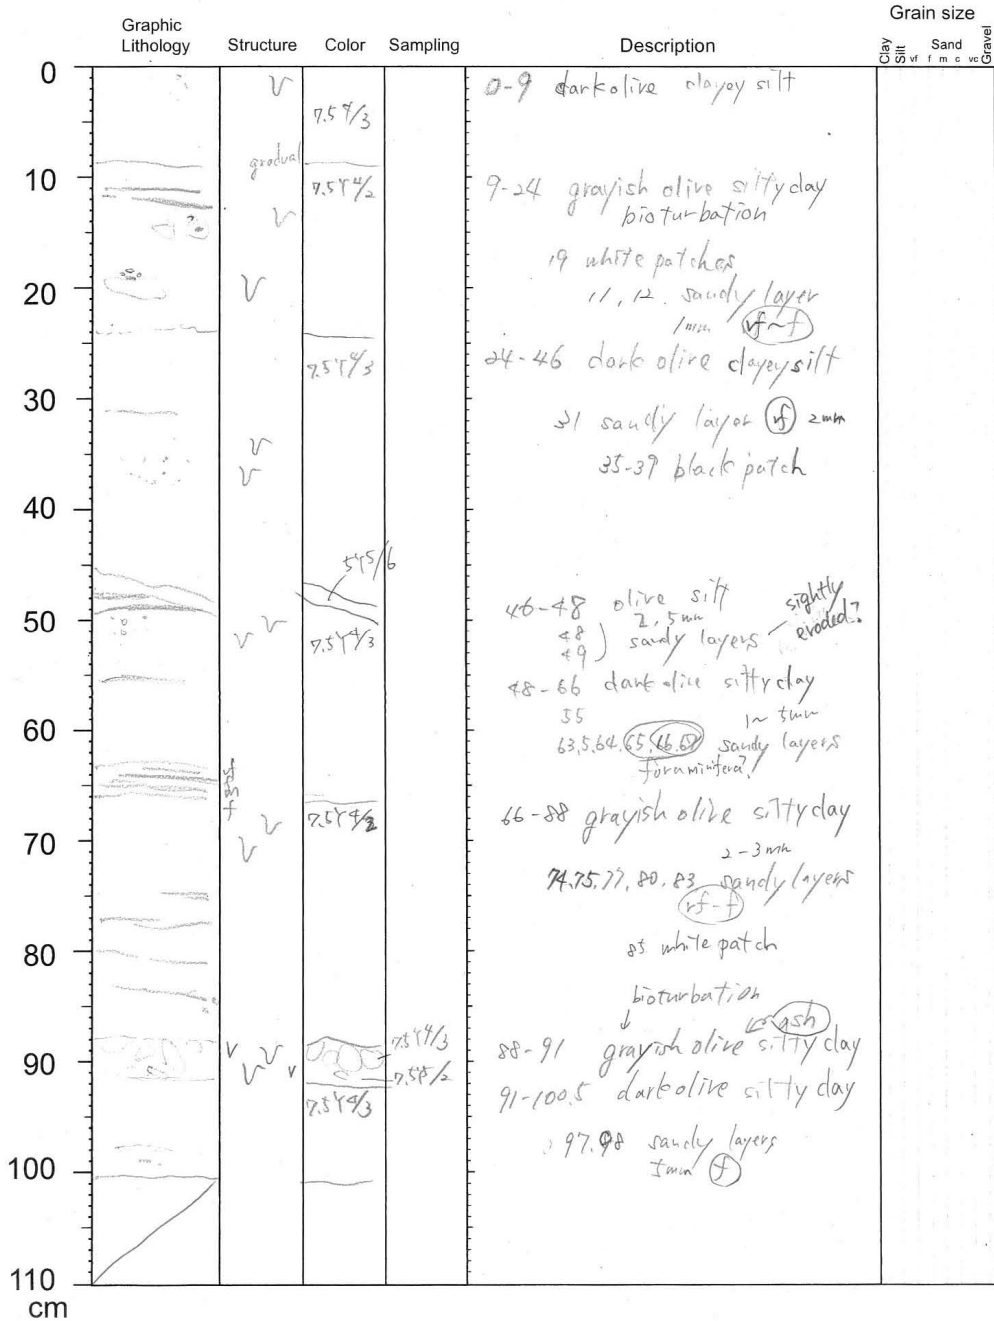 Graphic Lithology Structure Color Sampling Description Grain size
Clay Silt vf f m c vc Gravel
Sand
0
10
20
30
40
50
60
70
80
90
100
110
cm
gradual
7.5Y4/3
7.5Y4/2
7.5Y4/3
5Y5/6
7.5Y4/3
7.5Y4/2
7.5Y4/3
7.5Y5/2
7.5Y4/3
0-9 dark olive clayey silt
9-24 grayish olive silty clay
bioturbation
19 white patches
11, 12. sandy layer
1mm vf~f
24-46 dark olive clayey silt
31 sandy layer vf 2mm
35-39 black patch
46-48 olive silt
2, 5mm
48
49 ) sandy layers
sightly
eroded?
48-66 dark olive silty clay
55 1~5mm
63.5, 64, 65, 66, 67 sandy layers
foraminifera?
66-88 grayish olive silty clay
2-3mm
74, 75, 77, 80, 83 sandy layers
vf-f
85 white patch
bioturbation
ash
88-91 grayish olive silty clay
91-100.5 dark olive silty clay
97, 98 sandy layers
5mm f